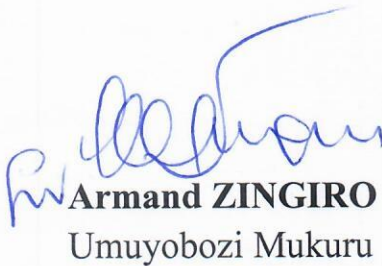 Armand ZINGIRO
Umuyobozi Mukuru